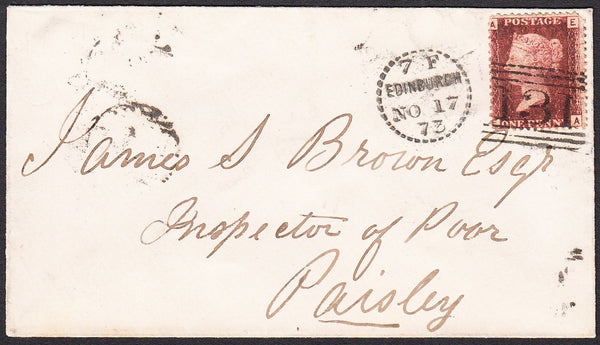 POSTAGE
A E
7 F
EDINBURGH
NO 17
73
131
2
ONE PENNY
A
James S Brown Esqr
Inspector of Poor
Paisley